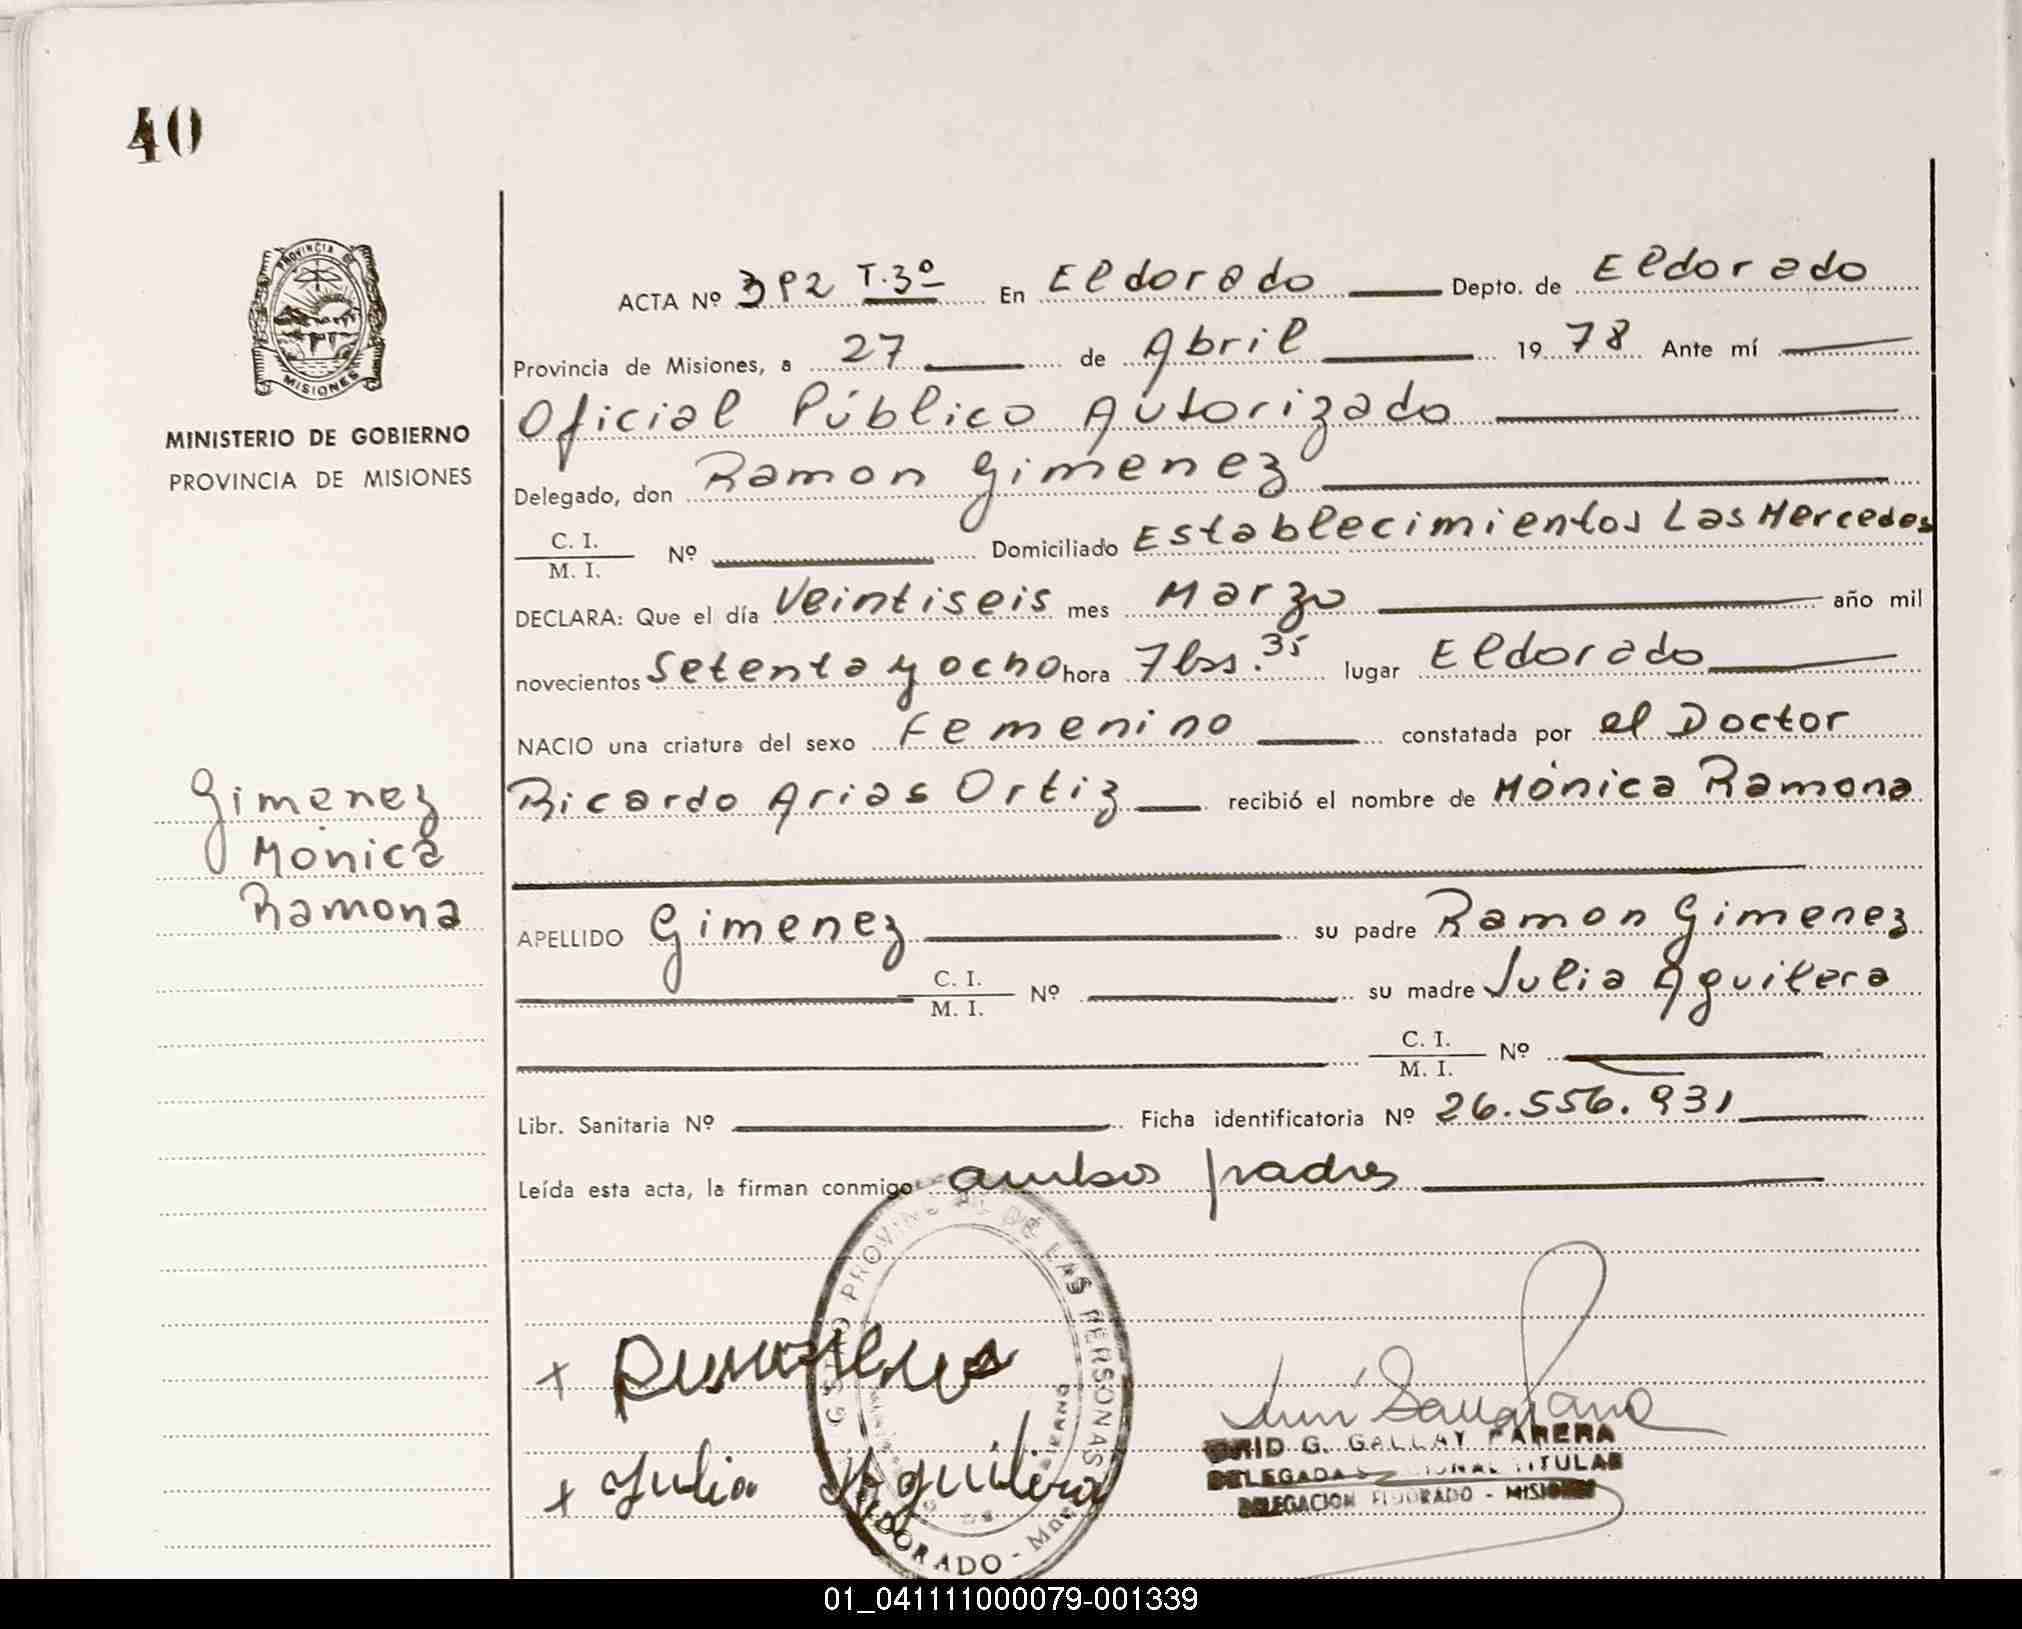 40
PROVINCIA DE
MISIONES
MINISTERIO DE GOBIERNO
PROVINCIA DE MISIONES
Gimenez
Mónica
Ramona
ACTA Nº 392 T.3º En Eldorado Depto. de Eldorado
Provincia de Misiones, a 27 de Abril 19 78 Ante mí
Oficial Público Autorizado
Delegado, don Ramon Gimenez
C. I.
M. I. Nº Domiciliado Establecimientos Las Mercedes
DECLARA: Que el día Veintiseis mes Marzo año mil
novecientos Setenta y ocho hora 7 hs. 35 lugar Eldorado
NACIO una criatura del sexo Femenino constatada por el Doctor
Ricardo Arias Ortiz recibió el nombre de Mónica Ramona
APELLIDO Gimenez su padre Ramon Gimenez
C. I.
M. I. Nº su madre Julia Aguilera
C. I.
M. I. Nº
Libr. Sanitaria Nº Ficha identificatoria Nº 26.556.931
Leída esta acta, la firman conmigo ambos padres
PROVINC DE LAS PERSONAS
ELDORADO - Mnes
+
+ Julia Aguilera
G. GALLAY PARERA
DELEGADA TITULAR
DELEGACION ELDORADO - MISIONES
01_041111000079-001339